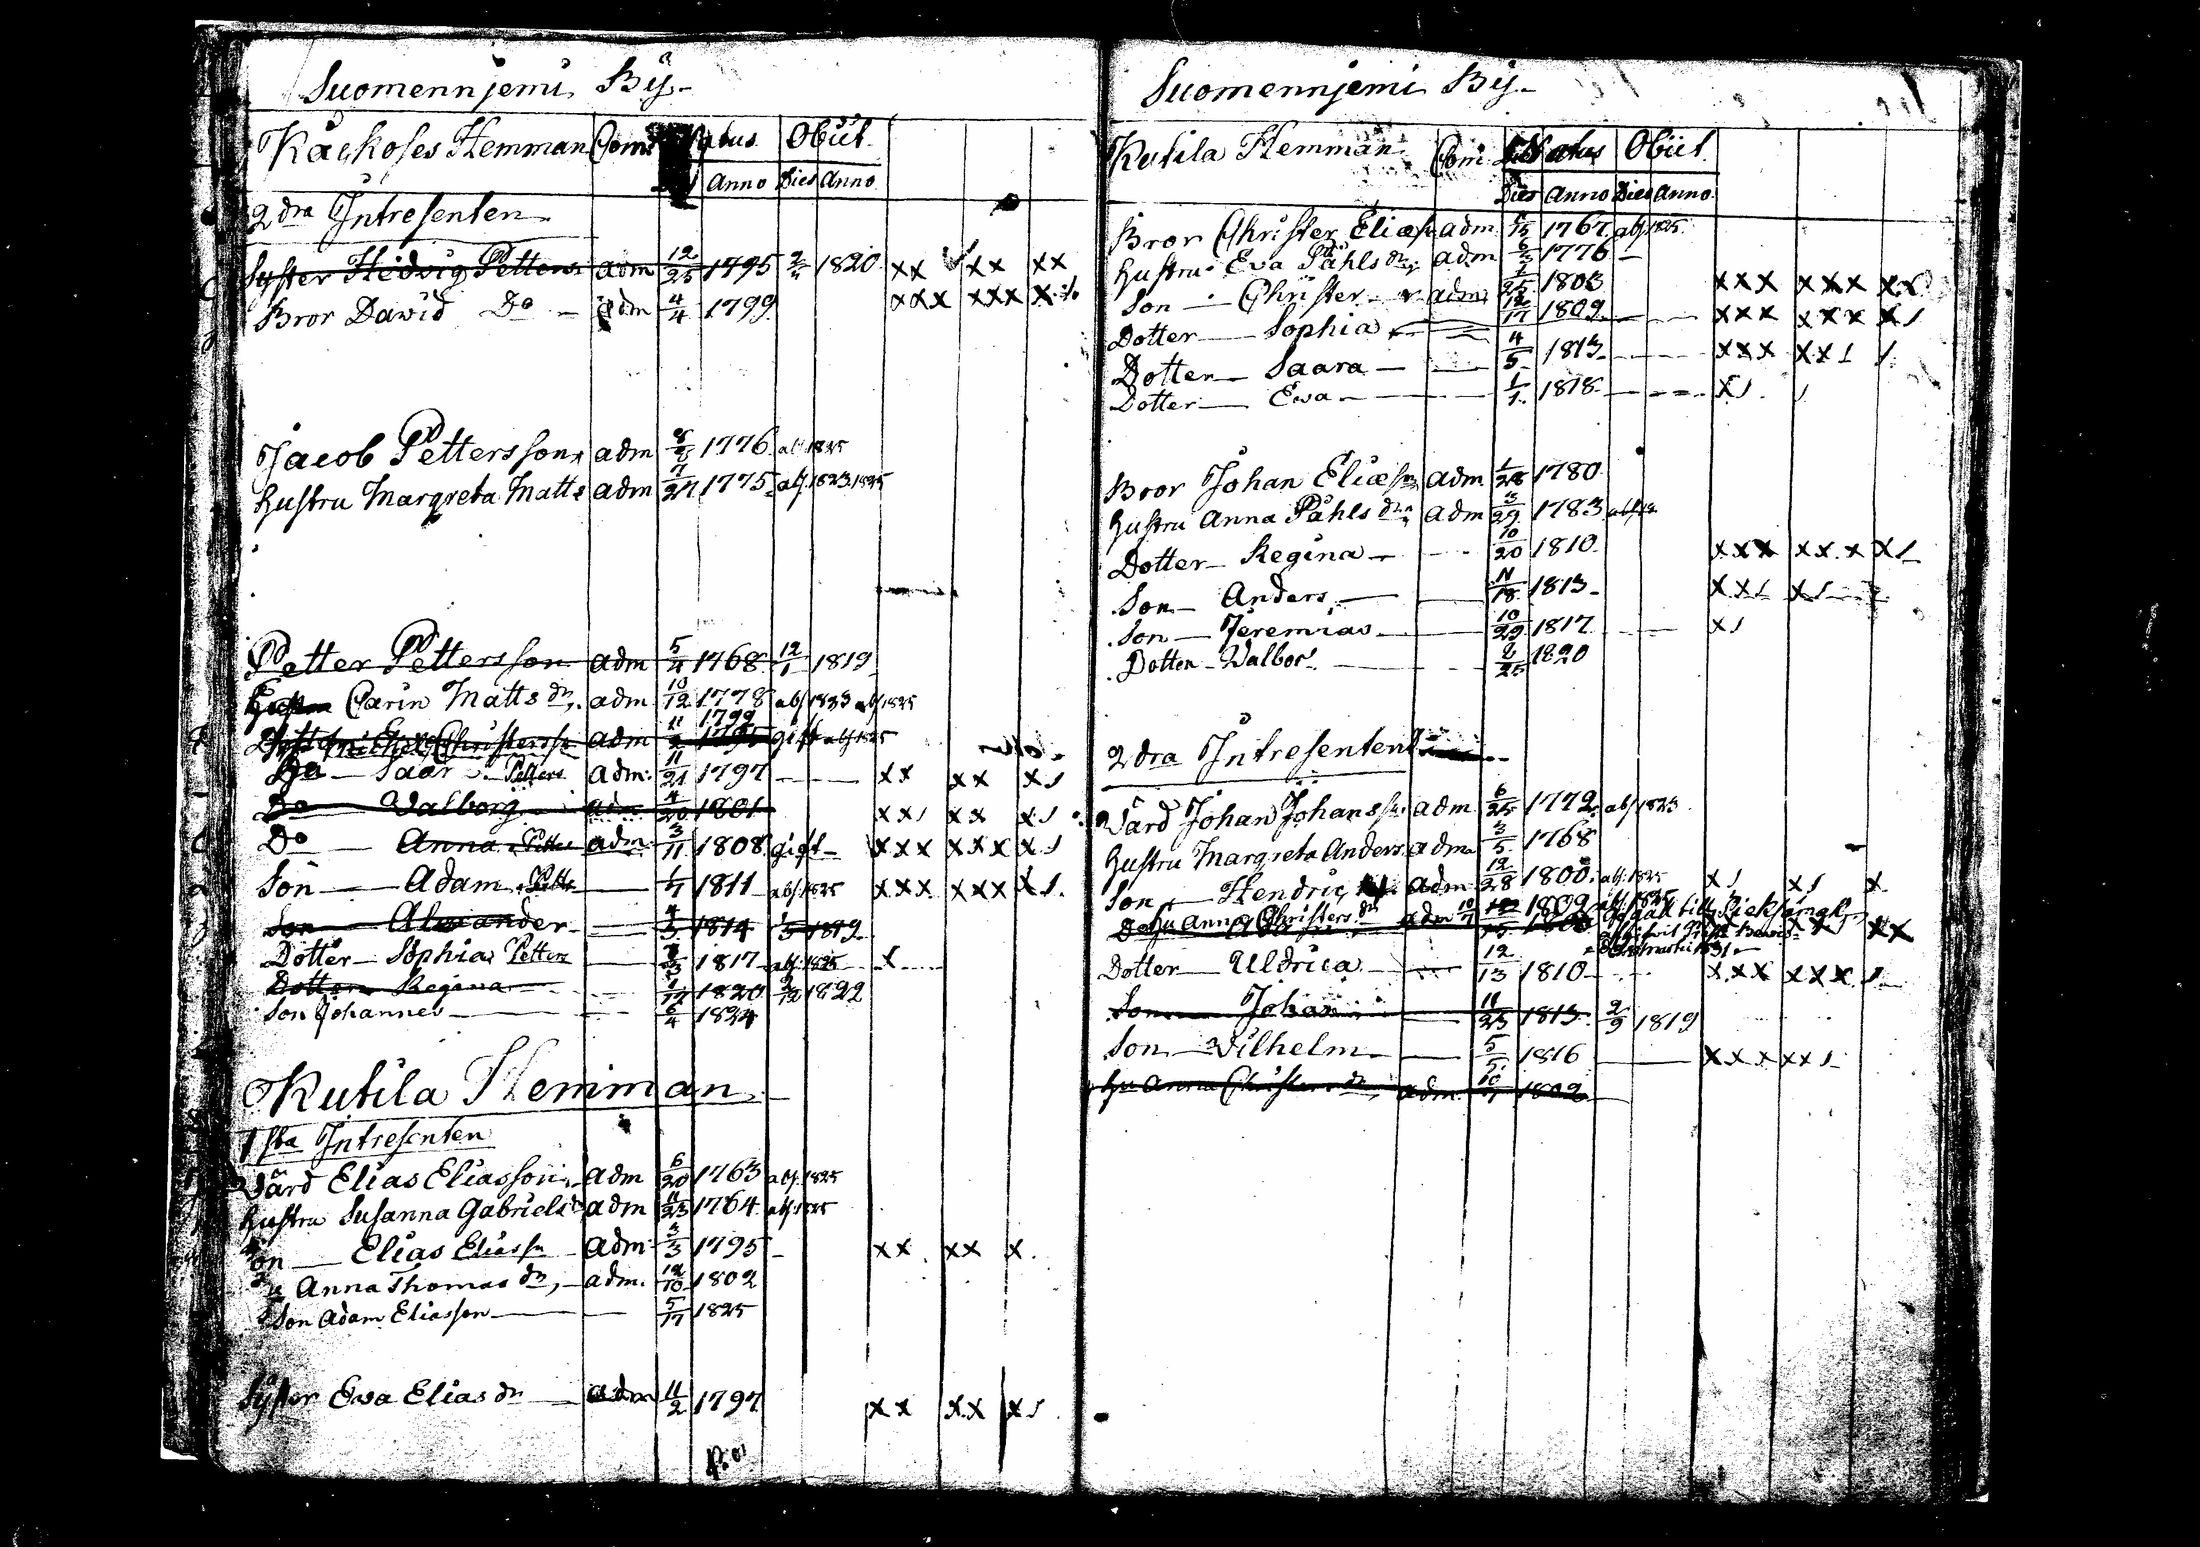 Suomennjemi By
Käckoses Hemman Com Natus Obiit
Anno Dies Anno
2dra Intresenten
Syster Hedvig Petters adm 12/25 1795 1820 xx xx xx
Bror David Do adm 4/4 1799 xxx xxx x
Jacob Pettersson adm 1776 abs 1825
hustru Margreta Matts adm 7/27 1775 abs. 1823. 1825
Petter Pettersson adm 5/4 1768 12/1 1819
Hustru Carin Matts dr. adm 10/12 1778 abs 1823 abs 1825
Christerss adm 11/2 1799 gift abs 1825
Do Saar Petters adm 11/21 1797 xx xx x1
Do Valborg adm 4/20 1801 xx1 xx x1
Do Anna Petters adm 3/11 1808 gift xxx xxx x1
Son Adam Petts 1811 abs. 1825 xxx xxx x1
Son Alexander 4/3 1814 1/5 1819
Dotter Sophia Petters 1817 abs. 1825 x
Dotter Regina 1/12 1820 2/12 1822
Son Johannes 6/4 1824
Kutila Hemman
1sta Intresenten
Värd Elias Eliasson adm 6/20 1763 abs. 1825
hustru Susanna Gabriels d adm 11/23 1764 abs. 1825
Son Elias Eliassn adm 3/3 1795 xx xx x
Hu Anna Thomas dr, adm. 12/10 1802
Son Adam Eliasson 5/17 1825
Syster Eva Elias dr adm 11/2 1797 xx xx x1
Suomennjemi By
Kutila Hemman Com Natus Obiit
Dies Anno Dies Anno
Bror Christer Eliæsn adm 1767 abs 1825
hustru Eva Påhls dr adm 6/3 1776
Son Christer adm 1/25 1803 xxx xxx xx
Dotter Sophia 12/17 1809 xxx xxx x1
Dotter Saara 4/5 1813 xxx xx1 1
Dotter Ewa 1/1 1818 x1 1
Bror Johan Eliæsn adm 1/28 1780
hustru Anna Påhls dr adm 3/29 1783
Dotter Regina 10/20 1810 xxx xxx x1
Son Anders 11/18 1813 xx1 x1
Son Jeremias 10/29 1817 x1
Dotter Valbor 8/25 1820
2dra Intresenten
Värd Johan Johanssn adm 6/25 1772 abs 1823
hustru Margreta Anders adm 3/5 1768
Son Hendric adm 12/28 1800 abs. 1825 x1 x1 x
Hu Anna Christers dr adm 10/7 1802 abs. 1825
Dotter Uldrica 12/13 1810 xxx xxx 1
Son Johan 11/23 1813 2/9 1819
Son Vilhelm 5/5 1816 xxx xx1
Hu Anna Christers dr adm 10/7 1802